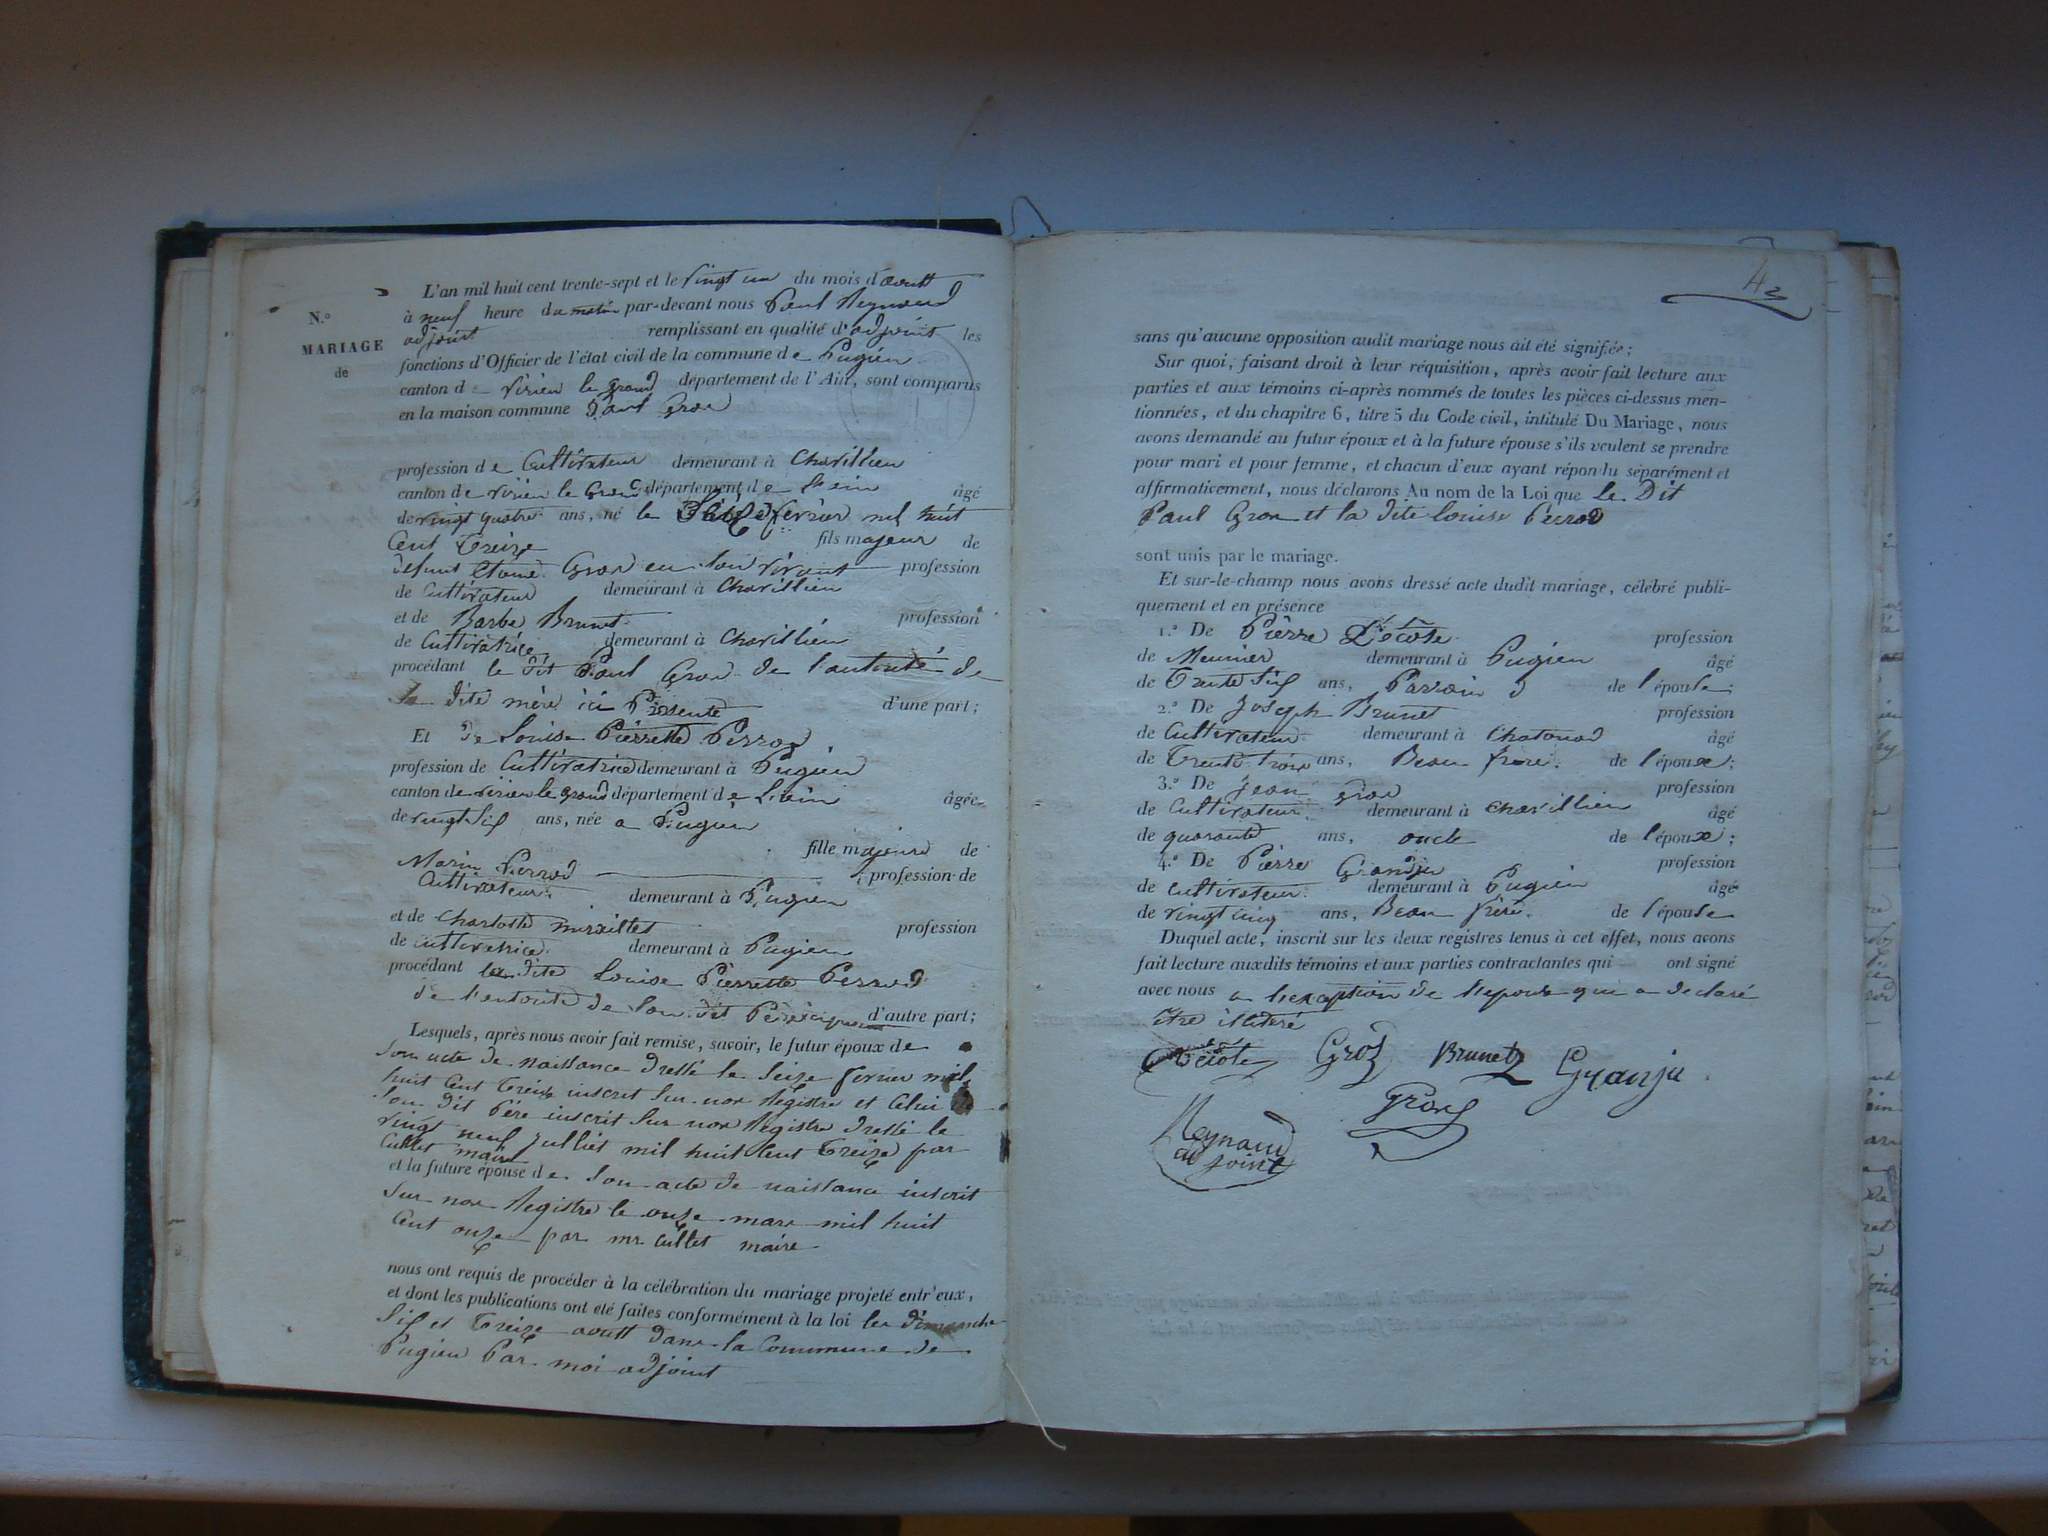 N.º
MARIAGE
de
L'an mil huit cent trente-sept et le vingt un du mois d'avutt
à neuf heure du matin par-devant nous Paul Reynaud
adjoint remplissant en qualité d'adjoint les
fonctions d'Officier de l'état civil de la commune de Pugieu
canton de virieu le grand département de l'Ain, sont comparus
en la maison commune Paul Gros
profession de Cultivateur demeurant à Chavillieu
canton de virieu le Grand département de L'ein âgé
de vingt quatre ans, né le février mil huit
Cent treize fils majeur de
defunt Gros en son vivant profession
de Cultivateur demeurant à Chavillieu
et de Barbe Brunet profession
de Cultivatrice demeurant à Chavillieu
procédant le dit Paul Gros de l'autorité de
la dite mère ici Présente d'une part;
Et de Louise Pierrette Perrod
profession de Cultivatrice demeurant à Pugieu
canton de virieu le grand département de L'ein âgée
de vingt six ans, née a Pugieu
fille majeure de
Marin Perrod profession de
Cultivateur demeurant à Pugieu
et de Charlotte profession
de cultivatrice demeurant à Pugieu
procédant la dite Louise Pierrette Perrod
de l'autorité de son dit Père d'autre part;
Lesquels, après nous avoir fait remise, savoir, le futur époux de
son acte de naissance dressé le Seize fevrier mil
huit Cent treize inscrit sur nos Registre et Celui de
son dit Père inscrit sur nos Registre dressé le
vingt neuf julliet mil huit Cent treize par
Cullet maire
et la future épouse de son acte de naissance inscrit
sur nos Registre le onze mars mil huit
Cent onze par mr Cullet maire
nous ont requis de procéder à la célébration du mariage projeté entr'eux,
et dont les publications ont été faites conformément à la loi les dimanche
six et treize avutt dans la Commune de
Pugieu Par moi adjoint
sans qu'aucune opposition audit mariage nous ait été signifiée;
Sur quoi, faisant droit à leur réquisition, après avoir fait lecture aux
parties et aux témoins ci-après nommés de toutes les pièces ci-dessus men-
tionnées, et du chapitre 6, titre 5 du Code civil, intitulé Du Mariage, nous
avons demandé au futur époux et à la future épouse s'ils veulent se prendre
pour mari et pour femme, et chacun d'eux ayant répondu séparément et
affirmativement, nous déclarons Au nom de la Loi que Le Dit
Paul Gros et la dite louise Perrod
sont unis par le mariage.
Et sur-le-champ nous avons dressé acte dudit mariage, célébré publi-
quement et en présence
1.º De Pierre Décote profession
de Meunier demeurant à Pugieu âgé
de Trente Six ans, Parrain de l'épouse;
2.º De Joseph Brunet profession
de Cultivateur demeurant à Chatonod âgé
de Trente trois ans, Beau frère de l'époux;
3.º De jean Gros profession
de Cultivateur demeurant à Chavillieu âgé
de quarante ans, oncle de l'époux;
4.º De Pierre Grandju profession
de Cultivateur demeurant à Pugieu âgé
de vingt cinq ans, Beau frère de l'épouse
Duquel acte, inscrit sur les deux registres tenus à cet effet, nous avons
fait lecture auxdits témoins et aux parties contractantes qui ont signé
avec nous a l'exception de l'epouse qui a declaré
être illiteré
Décote Gros Brunet Granju
Gros
Reynaud
adjoint